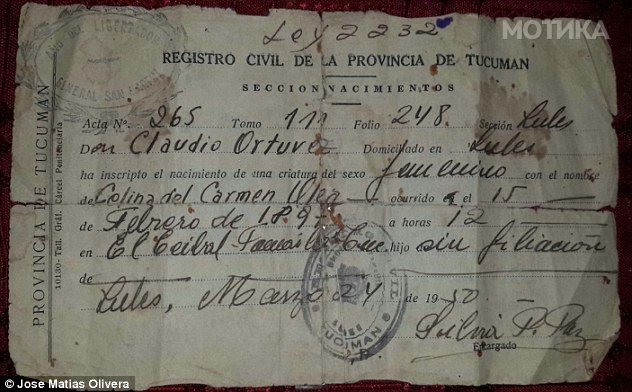 МОТИКА
Ley 2232
AÑO DEL LIBERTADOR
GENERAL SAN MARTIN
REGISTRO CIVIL DE LA PROVINCIA DE TUCUMAN
SECCION NACIMIENTOS
Acta Nº 265 Tomo 111 Folio 248 Sección Lules
Don Claudio Ortuvez Domiciliado en Lules
ha inscripto el nacimiento de una criatura del sexo femenino con el nombre
de Colina del Carmen ocurrido el 15
de Febrero de 189 a horas 12
en El Ceibal hijo sin filiación
de
Lules, Marzo 24 de 1950
Silvia P. Paz
Encargado
PROVINCIA DE TUCUMAN
10130- Tall. Gráf. Cárcel Penitenciaría
TUCUMAN
© Jose Matias Olivera